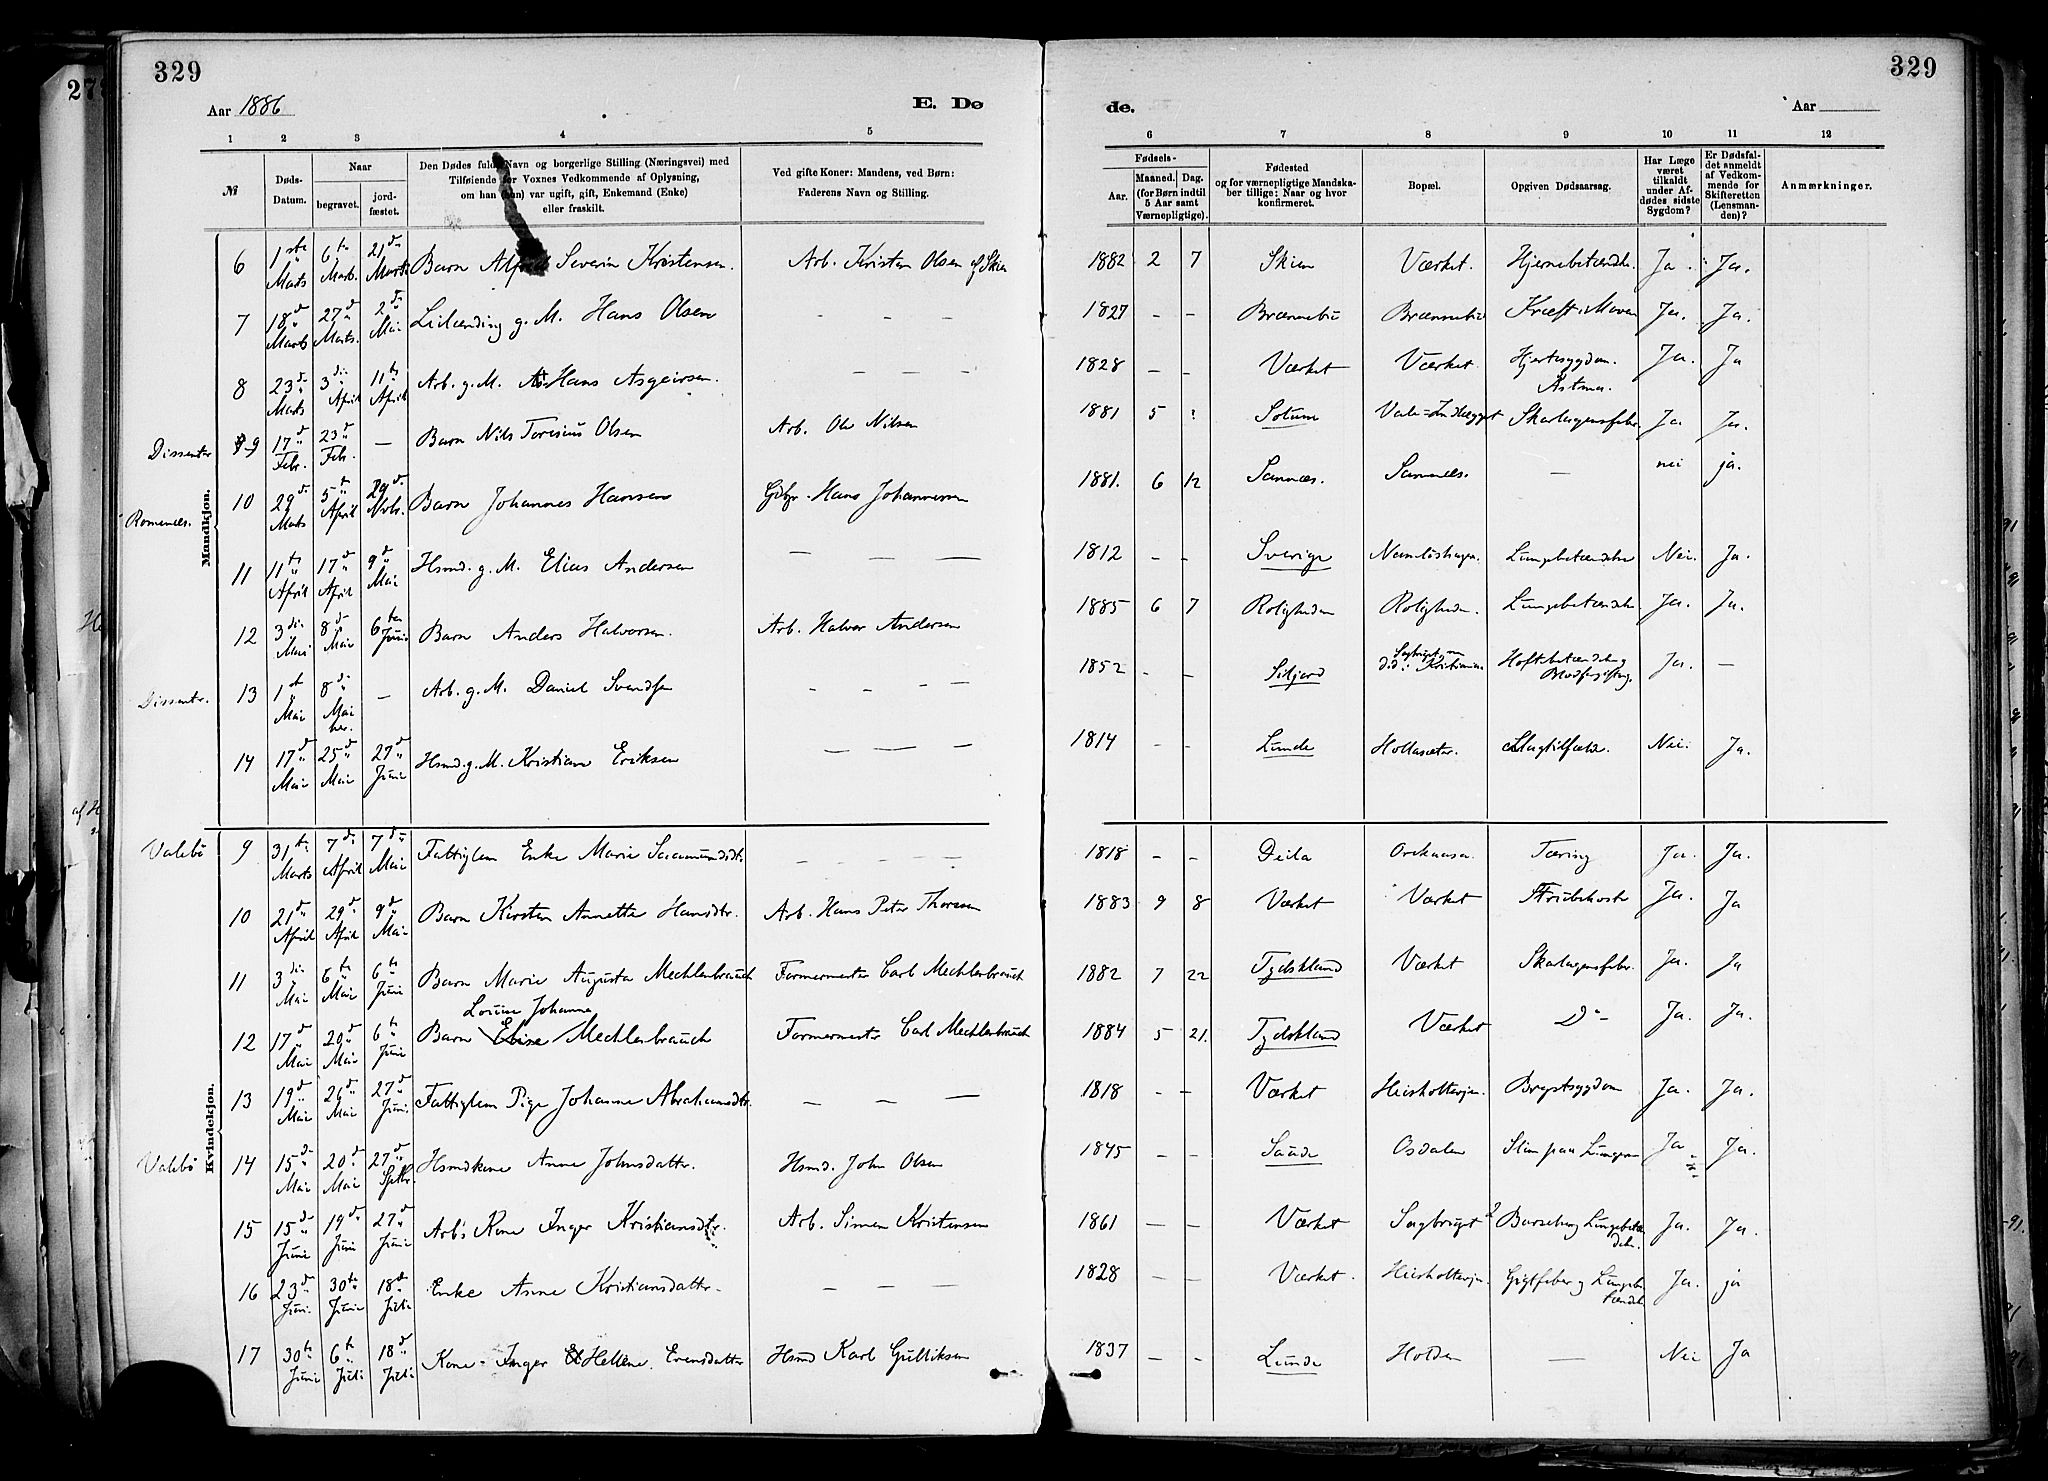 329
329
Aar 1886
E. Dø
de.
Aar
1 2 3 4 5 6 7 8 9 10 11 12
№
Døds-Datum.
Naar
begravet.
jord-fæstet.
Den Dødes fulde Navn og borgerlige Stilling (Næringsvei) med
Tilføiende for Voxnes Vedkommende af Oplysning,
om han (hun) var ugift, gift, Enkemand (Enke)
eller fraskilt.
Ved gifte Koner: Mandens, ved Børn:
Faderens Navn og Stilling.
Fødsels-
Aar.
Maaned. Dag.
(for Børn indtil
5 Aar samt
Værnepligtige).
Fødested
og for værnepligtige Mandska-
ber tillige: Naar og hvor
konfirmeret.
Bopæl.
Opgiven Dødsaarsag.
Har Læge
været
tilkaldt
under Af-
dødes sidste
Sygdom?
Er Dødsfal-
det anmeldt
af Vedkom-
mende for
Skifteretten
(Lensman-
den)?
Anmærkninger.
Mandkjøn.
6 1ste Marts 6te Marts 21de Marts Barn Alfred Severin Kristensen. Arb. Kristen Olsen af Skien 1882 2 7 Skien Værket. Hjernebetændelse. Ja. Ja.
7 18de Marts 27de Marts. 2den Mai Leilænding g. M. Hans Olsen – – – 1827 – – Brænnebu Brænnebu Kræft i Maven Ja. Ja.
8 23de Marts 3die April 11te April Arb. g. M. Hans Asgeirsen. – – – 1828 – – Værket Værket. Hjertesygdom. Astma. Ja. Ja
Dissenter 9 17de Febr. 23de Febr. – Barn Nils Toresius Olsen Arb. Ole Nilsen 1881 5 ? Sotum Skarlagensfeber. Ja Ja.
Romenæs. 10 29de Marts 5te April 29de Novbr. Barn Johannes Hansen Gdbr. Hans Johannesen 1881. 6 12 Sannæs. Sannæs. – nei ja.
11 11te April 17de April 9de Mai Hsmd. g. M. Elias Andersen – – – 1812 – – Sverige Lungebetændelse Nei. Ja.
12 3die Mai 8de Mai 6te Juni Barn Anders Halvorsen. Arb. Halvor Andersen 1885 6 7 Roligheden Roligheden. Lungebetændelse. Ja. Ja.
Dissenter. 13 1ste Mai 8de Mai her. – Arb. g. M. Daniel Svendsen – – – – 1852 – – Siljord Sagbruget, men død i Kristiania. Hoftebetændelse og Blodforgiftng. Ja. –
14 17de Mai 25de Mai 27de Juni Hsmd. g. M. Kristian Eriksen – – – 1814 – – Lunde Hollasæter. Slagtilfælde. Nei. Ja.
Kvindekjøn.
Valebø 9 31te Marts 7de April 7de Mai Fattiglem Enke Marie Saamundsdtr. – – – – 1818 – – Deila Tæring Ja. Ja.
10 21de April 29de April 9de Mai Barn Kirsten Annette Hansdtr. Arb. Hans Peter Thoresen 1883 9 8 Værket Værket Strubehoste Ja. Ja
11 3die Mai 6te Mai 6te Juni Barn Marie Augusta Mechlenbrauch Formermester Carl Mechlenbrauch 1882 7 22 Tydskland Værket Skarlagensfeber. Ja. Ja
Louise Johanne
12 17de Mai 20de Mai 6te Juni Barn Elise Mechlenbrauch Formermester Carl Mechlenbrauch 1884 5 21. Tydskland Værket Do – Ja. Ja.
13 19de Mai 26de Mai 27de Juni Fattiglem Pige Johanne Abrahamsdtr. – – – 1818 – – Værket Heisholtveien. Brystsygdom Ja. Ja.
Valebø 14 15de Mai 20de Mai 27de Septbr. Hsmdkone Anne Johnsdatter. Hsmd. John Olsen 1845 – – Saude Osdalen Slim paa Lungerne Ja Ja.
15 15de Juni 19de Juni 27de Juni Arb's Kone Inger Kristiansdtr. Arb. Simen Kristensen 1861 – – Værket Sagbruget Barselseng Lungebetændelse. Ja. Ja.
16 23de Juni 30te Juni 18de Juli Enke Anne Kristiansdatter. – – – 1828 – – Værket. Heisholtveien. Gigtfeber og Lungebetændelse Ja. ja
17 30te Juni 6te Juli 18de Juli Kone Inger Hellene Evensdatter Hsmd Karl Gulliksen 1837 – – Lunde Holden – Nei Ja